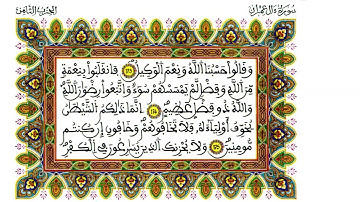 سورة آل عمران
الحزب الثامن
وَقَالُوا۟ حَسْبُنَا ٱللَّهُ وَنِعْمَ ٱلْوَكِيلُ ۝ فَٱنقَلَبُوا۟ بِنِعْمَةٍ
مِّنَ ٱللَّهِ وَفَضْلٍ لَّمْ يَمْسَسْهُمْ سُوٓءٌ وَٱتَّبَعُوا۟ رِضْوَٰنَ ٱللَّهِ
وَٱللَّهُ ذُو فَضْلٍ عَظِيمٍ ۝ إِنَّمَا ذَٰلِكُمُ ٱلشَّيْطَٰنُ
يُخَوِّفُ أَوْلِيَآءَهُۥ فَلَا تَخَافُوهُمْ وَخَافُونِ إِن كُنتُم
مُّومِنِينَ ۝ وَلَا يُحْزِنكَ ٱلَّذِينَ يُسَٰرِعُونَ فِي ٱلْكُفْرِ